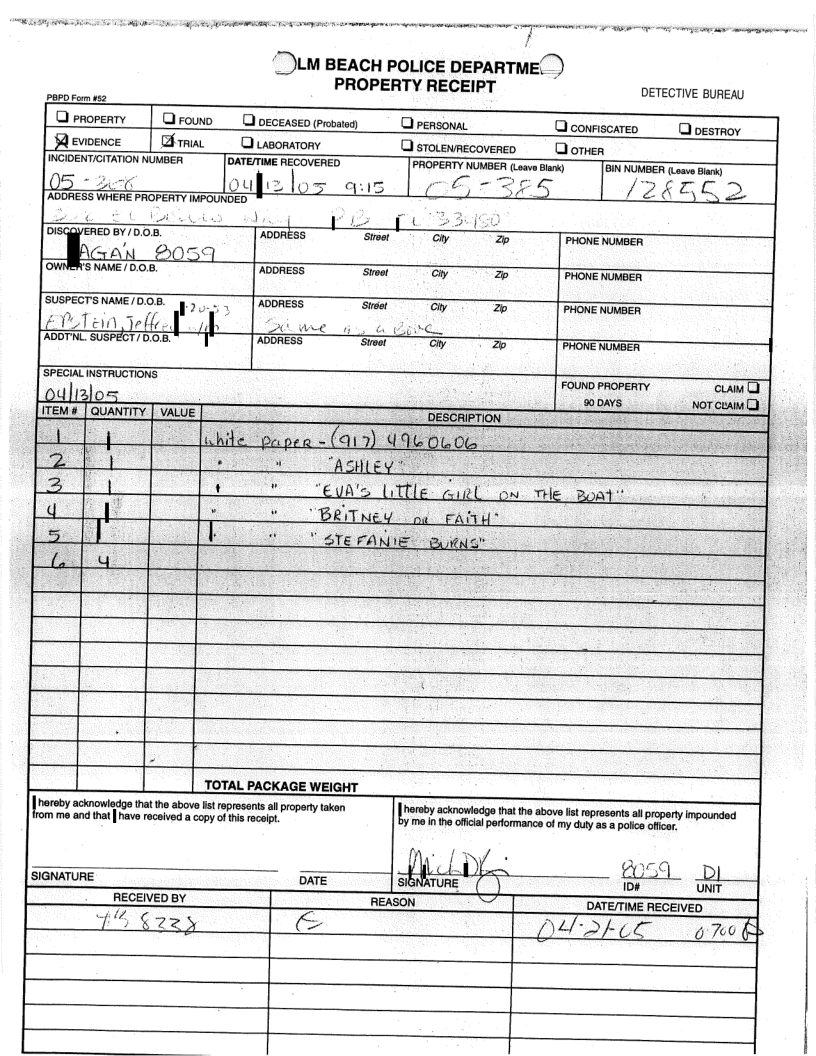 LM BEACH POLICE DEPARTME
PROPERTY RECEIPT
DETECTIVE BUREAU
PBPD Form #52
PROPERTY FOUND DECEASED (Probated) PERSONAL CONFISCATED DESTROY
EVIDENCE TRIAL LABORATORY STOLEN/RECOVERED OTHER
INCIDENT/CITATION NUMBER DATE/TIME RECOVERED PROPERTY NUMBER (Leave Blank) BIN NUMBER (Leave Blank)
05-368 04 13 05 9:15 05-385 128552
ADDRESS WHERE PROPERTY IMPOUNDED
El Brillo Way PB FL 33480
DISCOVERED BY / D.O.B. ADDRESS Street City Zip PHONE NUMBER
AGAN 8059
OWNER'S NAME / D.O.B. ADDRESS Street City Zip PHONE NUMBER
SUSPECT'S NAME / D.O.B. ADDRESS Street City Zip PHONE NUMBER
20-53
EPStein, Jeffre Same as above
ADDT'NL. SUSPECT / D.O.B. ADDRESS Street City Zip PHONE NUMBER
SPECIAL INSTRUCTIONS FOUND PROPERTY CLAIM
04/13/05 90 DAYS NOT CLAIM
ITEM # QUANTITY VALUE DESCRIPTION
1 1 white paper - (917) 4960606
2 1 " " "ASHLEY"
3 1 " " "EVA'S LITTLE GIRL ON THE BOAT"
4 1 " " "BRITNEY or FAITH"
5 1 " " "STEFANIE BURNS"
6 4
TOTAL PACKAGE WEIGHT
I hereby acknowledge that the above list represents all property taken
from me and that I have received a copy of this receipt.
I hereby acknowledge that the above list represents all property impounded
by me in the official performance of my duty as a police officer.
8059 DI
SIGNATURE DATE SIGNATURE ID# UNIT
RECEIVED BY REASON DATE/TIME RECEIVED
8238 E 04-21-05 0700